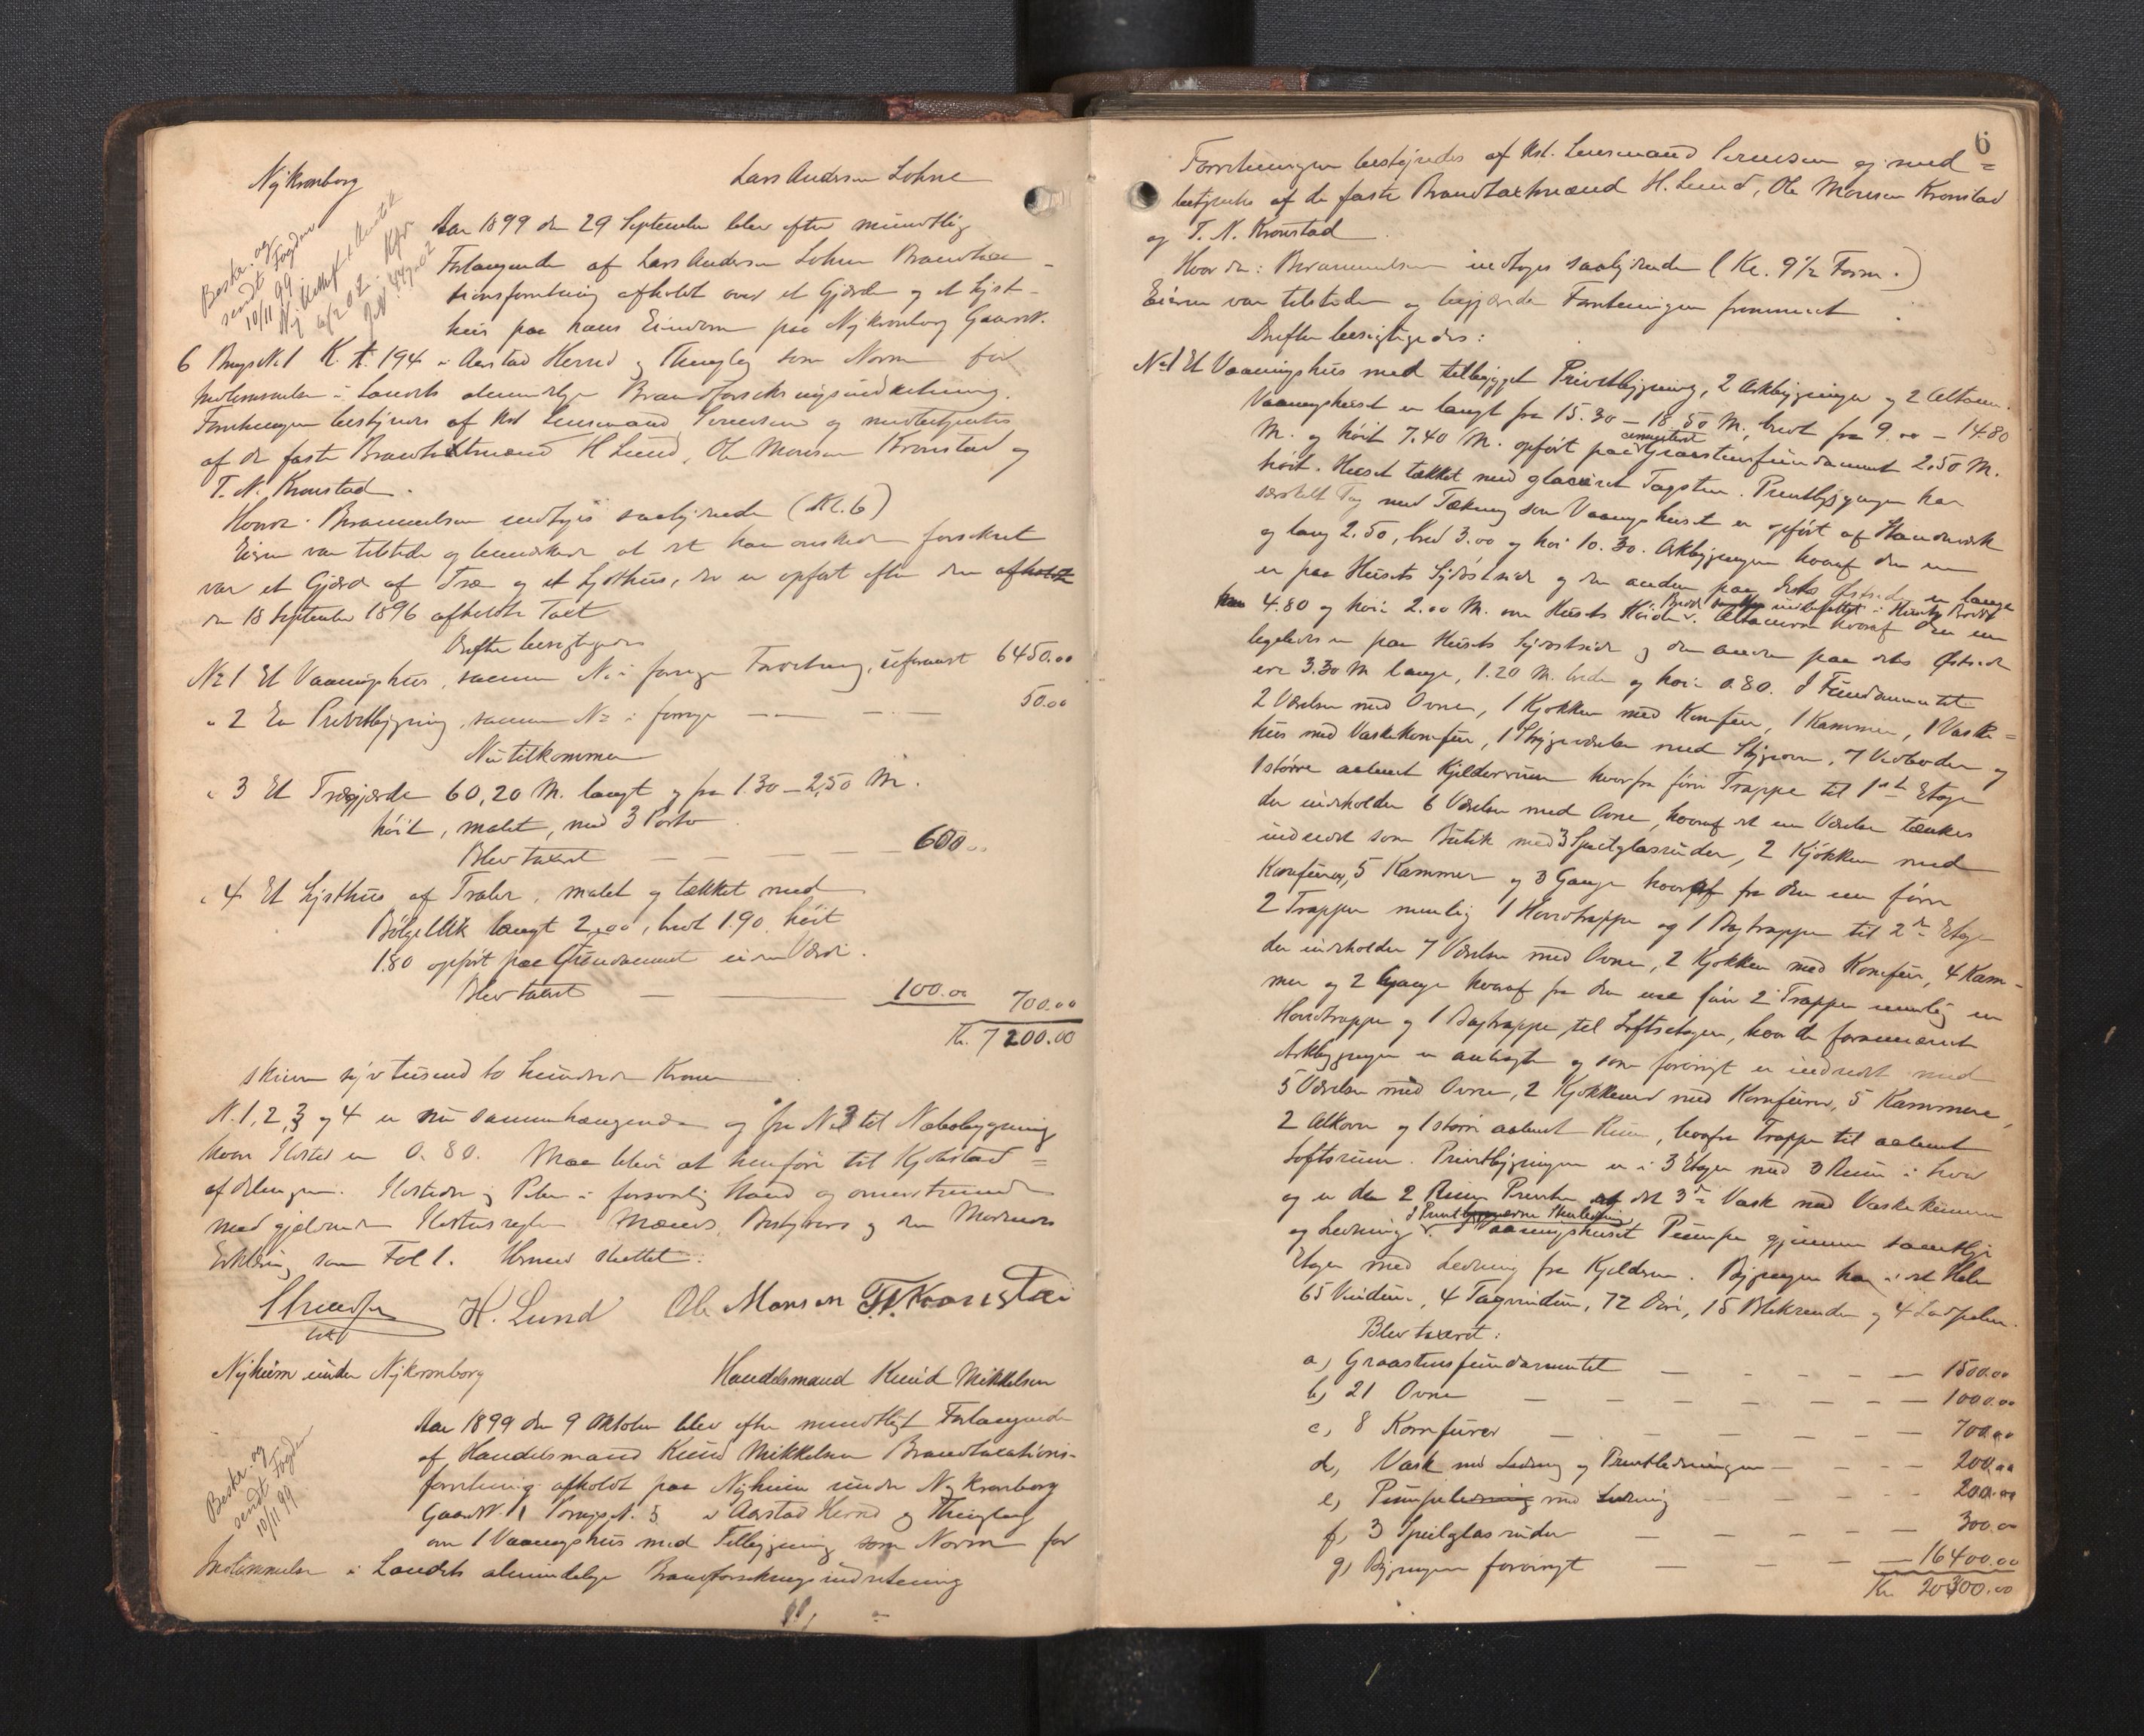 Nykronborg
Lars Andersen Lohne
Beskr. og
sendt Fogden
10/11 99
Aar 1899 den 29 September blev efter mundtlig
Forlangende af Lars Andersen Lohne Brandtaxa-
tionsforretning afholdt over et Gjærde og et Lyst-
huus paa hans Eiendom paa Nykronborg Gaards N.
6 Brugs N. 1 K. K. 194 i Aarstad Herred og Thinglag som Norm for
Indlemmelse i Landets almindelige Brandforsikringsindretning.
Forretningen bestyredes af Kst. Lensmand og medbetjentes
af de faste Brandtaxtmænd H Lund, Ole Monsen Kronstad og
T. N. Kronstad.
Hvorda: Berammelsen indtoges saalydende (Kl. 6)
Eieren var tilstede og bemærkede at det han ønskede forsikret
var et Gjærde af Træ og et Lysthus, der er opført efter den afholdte
den 18 September 1896 afholdte Taxt
Derefter besigtigedes
No 1 Et Vaaningshus, samme No i forrige Forretning, uforandr. 6450.00
" 2 En Privetbygning, samme No i forrige — — — 50.00
Nu tilkommer
" 3 Et Trægjærde 60,20 M. langt og fra 1.30 – 2,50 M.
høit, malet, med 3 Porte
Blev taxeret — — — — 600.00
" 4 Et Lysthus af Traler, malet og tækket med
Bølgeblik langt 2,00, bredt 1.90, høit
1.80 opført paa Grundmuret uden Værdi.
Blev taxeret — — 100.00 700.00
Kr. 7200.00
skriver syv tusend to hundrede Kroner
N. 1, 2, 3 og 4 er nu sammenhængende og fra No 3 til Nabobygning
hvor Ildsted er 0.80. Maa blive at henføre til Kjøbstad=
afdelingen. Ildsteder og Piber i forsvarlig Stand og overensstemmende
med gjældende Ildstedsregler. Mændenes, Bestyrerens og den
Erklæring som Fol 1. Hermed sluttet.
H. Lund Ole Monsen T.N. Kronstad
Nyheim under Nykronborg
Handelsmand Knud Mikkelsen
Beskr. og
sendt Fogden
10/11 99
Aar 1899 den 9 Oktober blev efter mundtligt Forlangende
af Handelsmand Knud Mikkelsen Brandtaxations-
forretning afholdt paa Nyheim under Nykronborg
Gaards N. Brugs N. 5 i Aarstad Herred og Thinglag
over 1 Vaaningshus med Tilbygning som Norm for
Indlemmelse i Landets almindelige Brandforsikringsindretning
6
Forretningen bestyredes af Kst. Lensmand og med=
betjentes af de faste Brandtaxtmænd H. Lund, Ole Monsen Kronstad
og T. N. Kronstad.
Hvorda: Berammelsen indtoges saalydende (Kl. 9½ Form.)
Eieren var tilstede og begjærede Forretningen fremmet.
Derefter besigtigedes:
No 1 Et Vaaningshus med tilbygget Privetbygning, 2 Arkbygninger og 2 Altaner.
Vaaningshuset er langt fra 15.30 – 18.50 M., bredt fra 9.00 – 14.80
M. og høit 7.40 M. opført paa cementeret Graastensfundament 2.50 M.
høit. Huset tækket med glaseret Tagsten. Privetbygningen har
særskilt Tag med Tækning som Vaaningshuset er opført af Standerværk
og lang 2.50, bred 3.00 og høi 10.30. Arkbygningen hvoraf den ene
er paa Husets Sydøstside og den anden paa dets Østside er lange
4.80 og høie 2.00 M. over Husets Høide. Bredden indbefattet i Husets Bredde. Altanerne hvoraf den ene
ligeledes er paa Husets Sydostside og den anden paa dets Østside
ere 3.30 M. lange, 1.20 M. brede og høie 0.80. I Fundamentet
2 Værelser med Ovne, 1 Kjøkken med Komfur, 1 Kammer, 1 Vaske=
hus med Vaskekomfur, 1 Strygeværelse med Strygeovn, 7 Vedboder og
1 større aabent Kjelderrum hvorfra fører Trappe til 1ste Etage
der indeholder 6 Værelser med Ovne, hvoraf det ene Værelse tænkes
indredet som Butik med 3 Speilglasruder, 2 Kjøkken med
Komfurer, 5 Kammer og 3 Gange hvoraf fra den ene fører
2 Trapper nemlig 1 Hovedtrappe og 1 Bagtrappe til 2den Etage
der indeholder 7 Værelser med Ovne, 2 Kjøkken med Komfur, 4 Kam-
mer og 2 Gange hvoraf fra den ene fører 2 Trapper nemlig en
Hovedtrappe og 1 Bagtrappe til Loftsetagen, hvor de forannævnte
Arkbygninger er anbragte og som forøvrigt er indredet med
5 Værelser med Ovne, 2 Kjøkkener med Komfurer, 5 Kammere,
2 Alkover og 1 større aabent Rum, hvorfra Trappe til aabent
Loftsrum. Privetbygningen er i 3 Etager med 3 Rum i hver
og er der 2 Rum Priveter og det 3die Vask med Vaskekummer
og Ledning. I Vaaningshuset Pumpe gjennem samtlige
Etager med Ledning fra Kjelderen. Bygningen har i det Hele
65 Vinduer, 4 Tagvinduer, 72 Døre, 18 Blikrender og 4 Ladpiber.
Blev taxeret:
a) Graastensfundamentet — — — — 1500.00
b) 21 Ovne — — — — 1000.00
c) 8 Komfurer — — — — 700.00
d) Vask med Ledning og Privetledninger — — — 200.00
e) Pumpeledning med Ledning — — 200.00
f) 3 Speilglasruder — — — 300.00
g) Bygningen forøvrigt — — — 16400.00
Kr. 20300.00